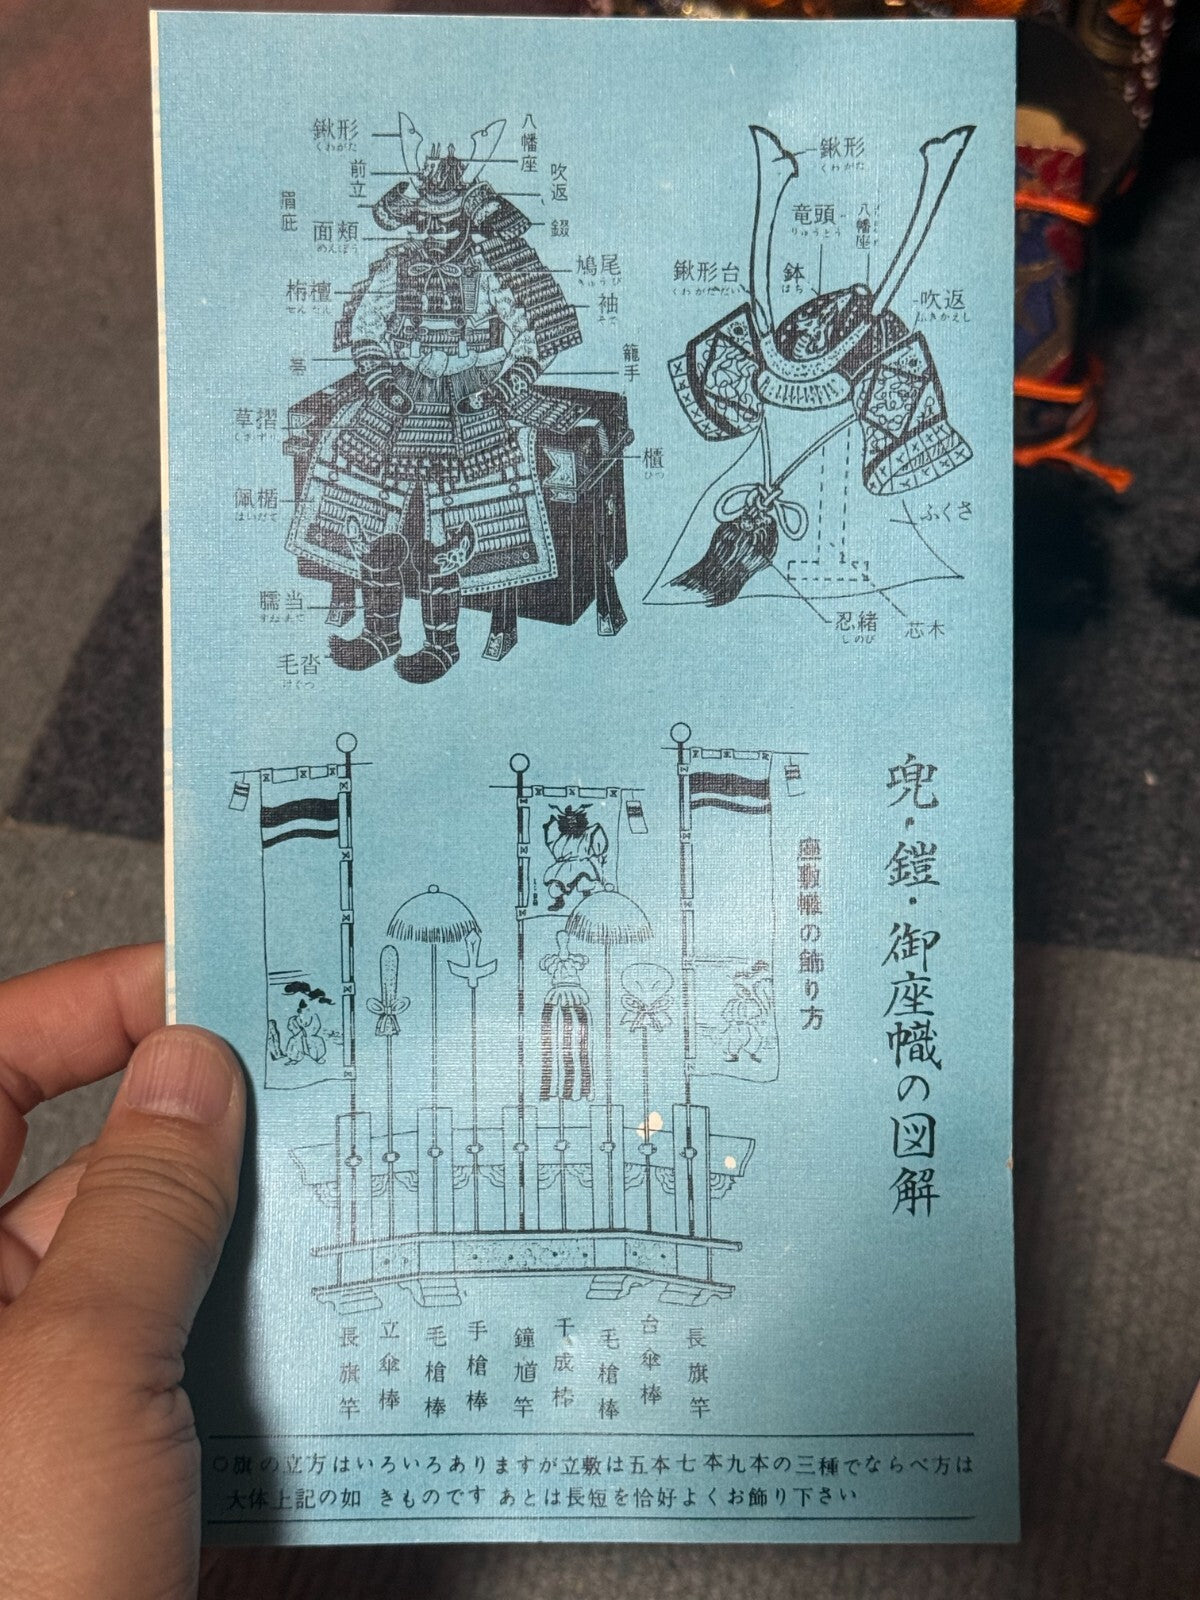 兜・鎧・御座幟の図解
鍬形
くわがた
前立
眉庇
面頬
めんぼう
栴檀
せんだん
草摺
くさずり
佩楯
はいだて
臑当
すねあて
毛沓
けぐつ
八幡座
吹返
錣
鳩尾
きゅうび
袖
そで
籠手
櫃
ひつ
鍬形
くわがた
竜頭
りゅうとう
八幡座
鍬形台
くわがただい
鉢
はち
吹返
ふきかえし
ふくさ
忍緒
しのび
芯木
座敷幟の飾り方
長旗竿
立傘棒
毛槍棒
手槍棒
鐘馗竿
千成棒
毛槍棒
台傘棒
長旗竿
○旗の立方はいろいろありますが立敷は五本七本九本の三種でならべ方は
大体上記の如きものです あとは長短を恰好よくお飾り下さい